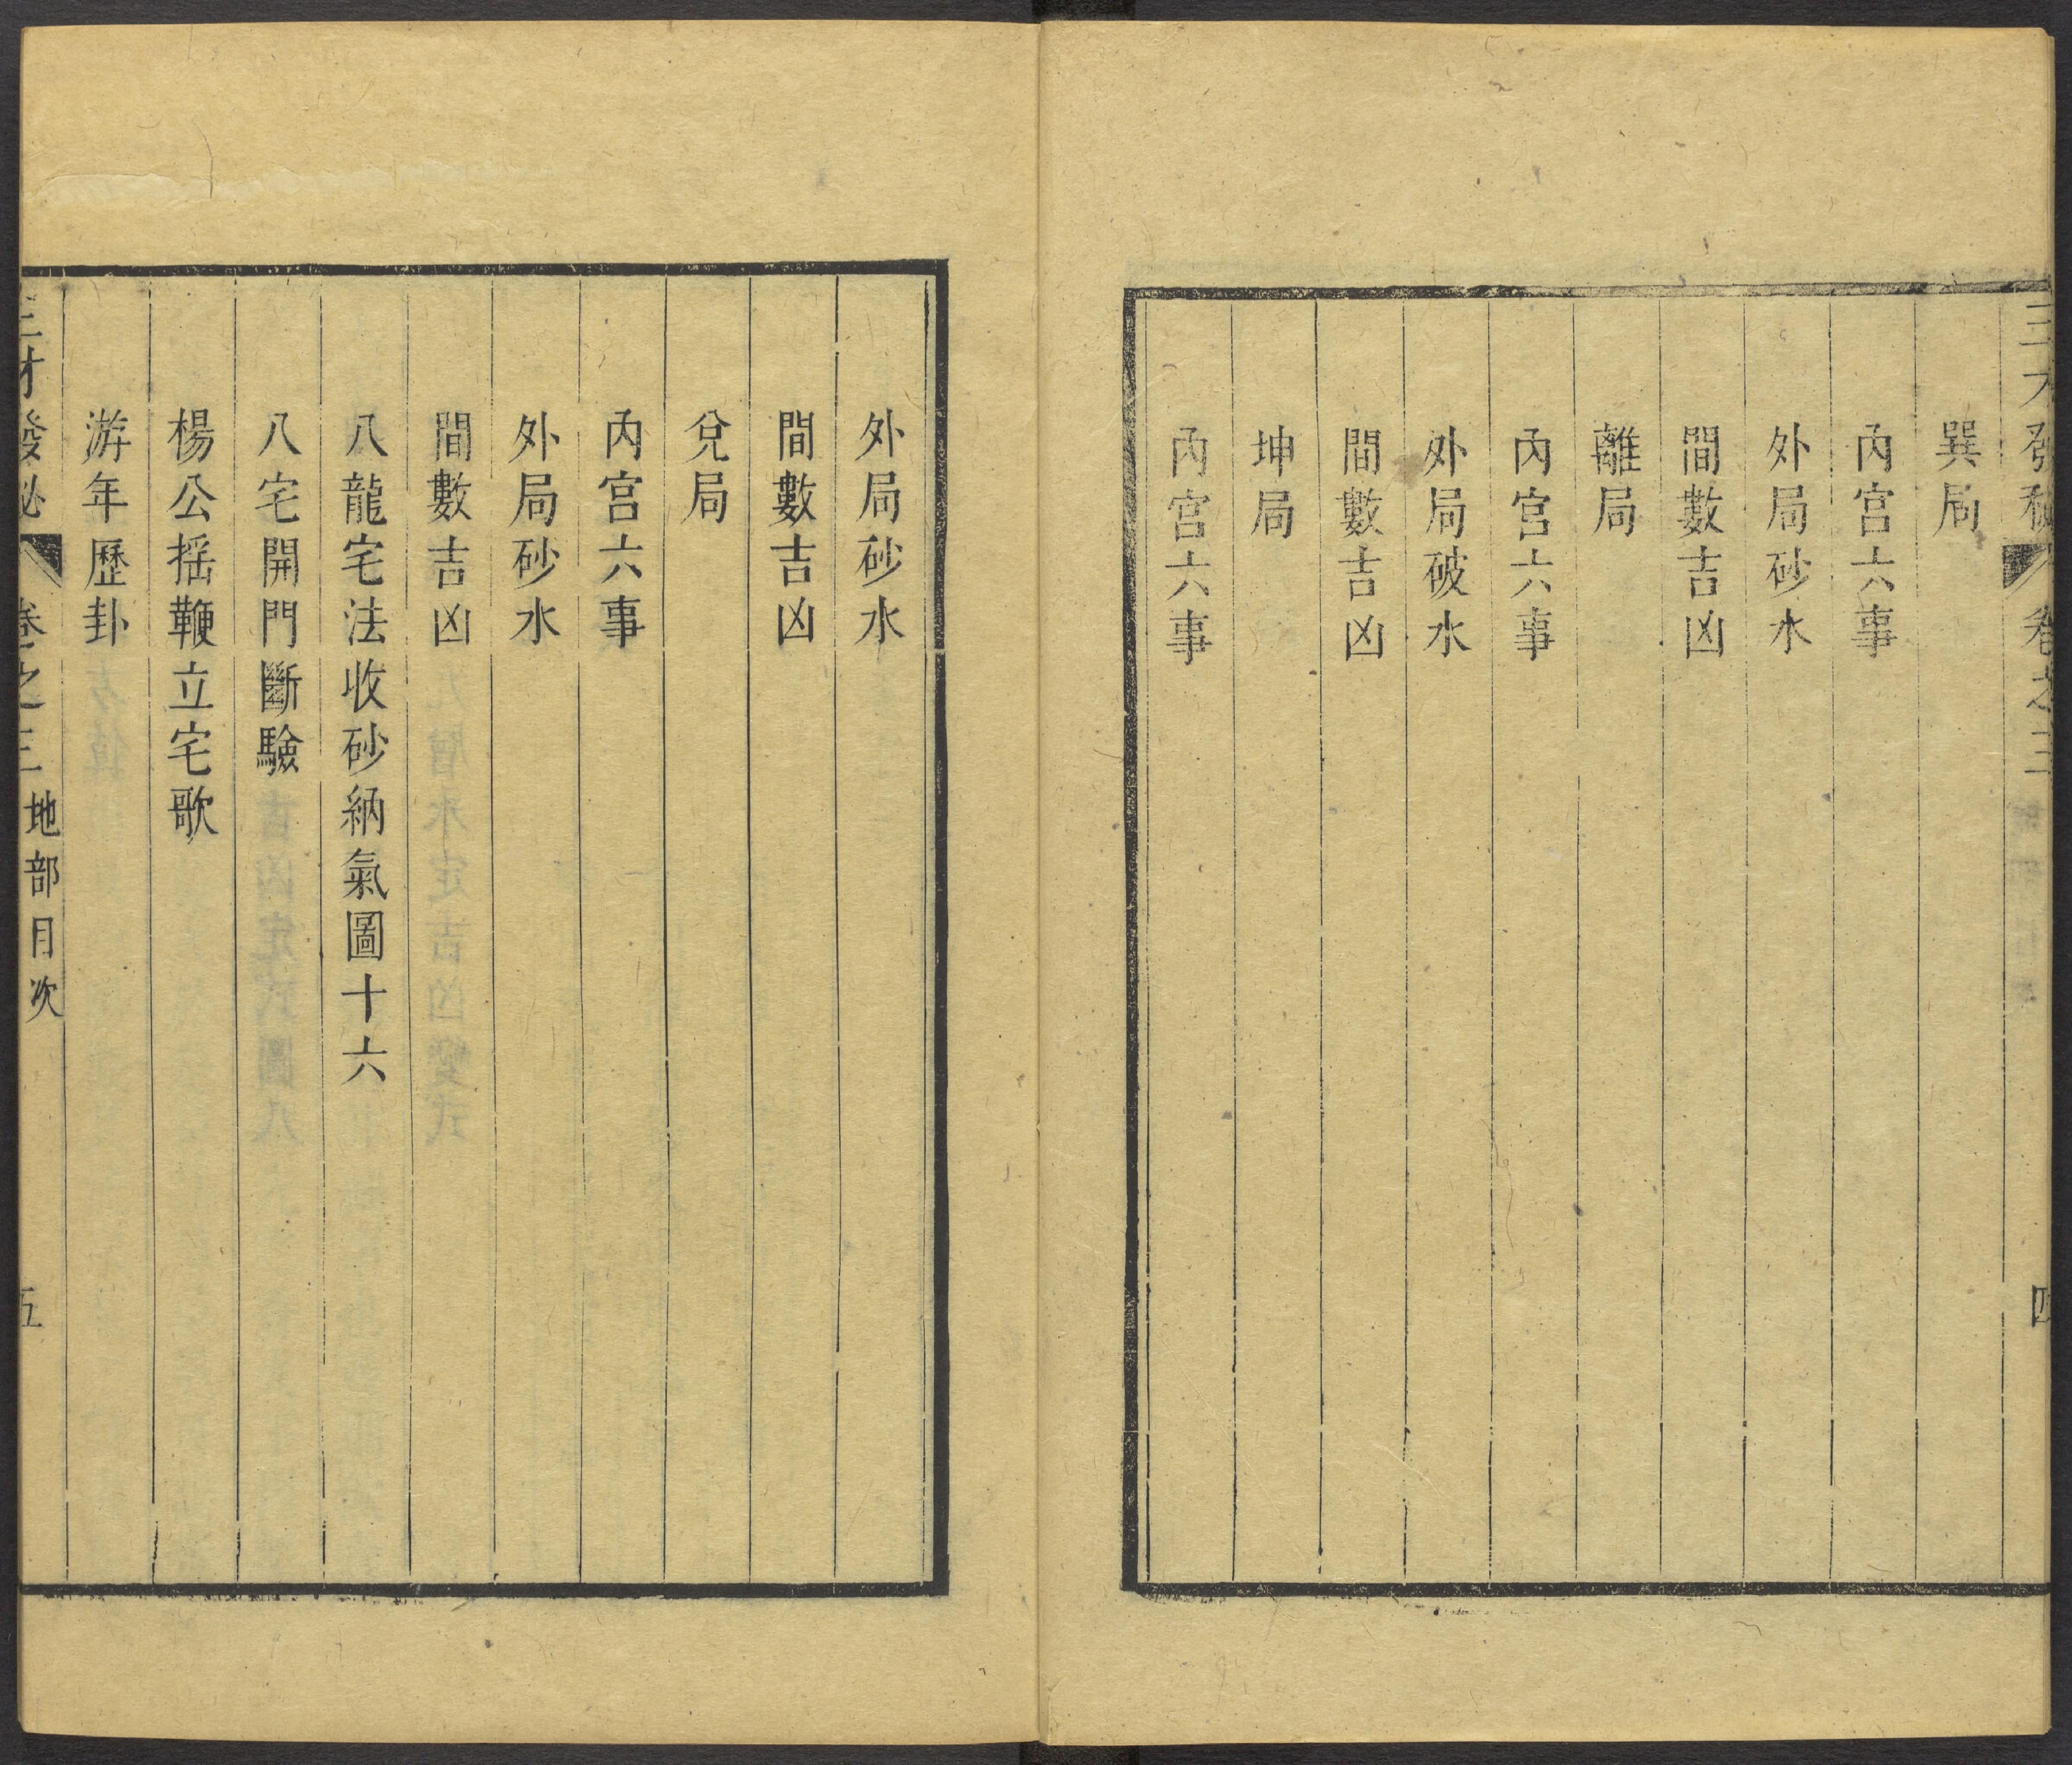 三才發秘 卷之三 四
巽局
內宫六事
外局砂水
間數吉凶
離局
內宫六事
外局破水
間數吉凶
坤局
內宫六事
外局砂水
間數吉凶
兌局
內宫六事
外局砂水
間數吉凶
八龍宅法收砂納氣圖十六
八宅開門斷驗
楊公摇鞭立宅歌
游年歷卦
三才發秘 卷之三 地部目次 五